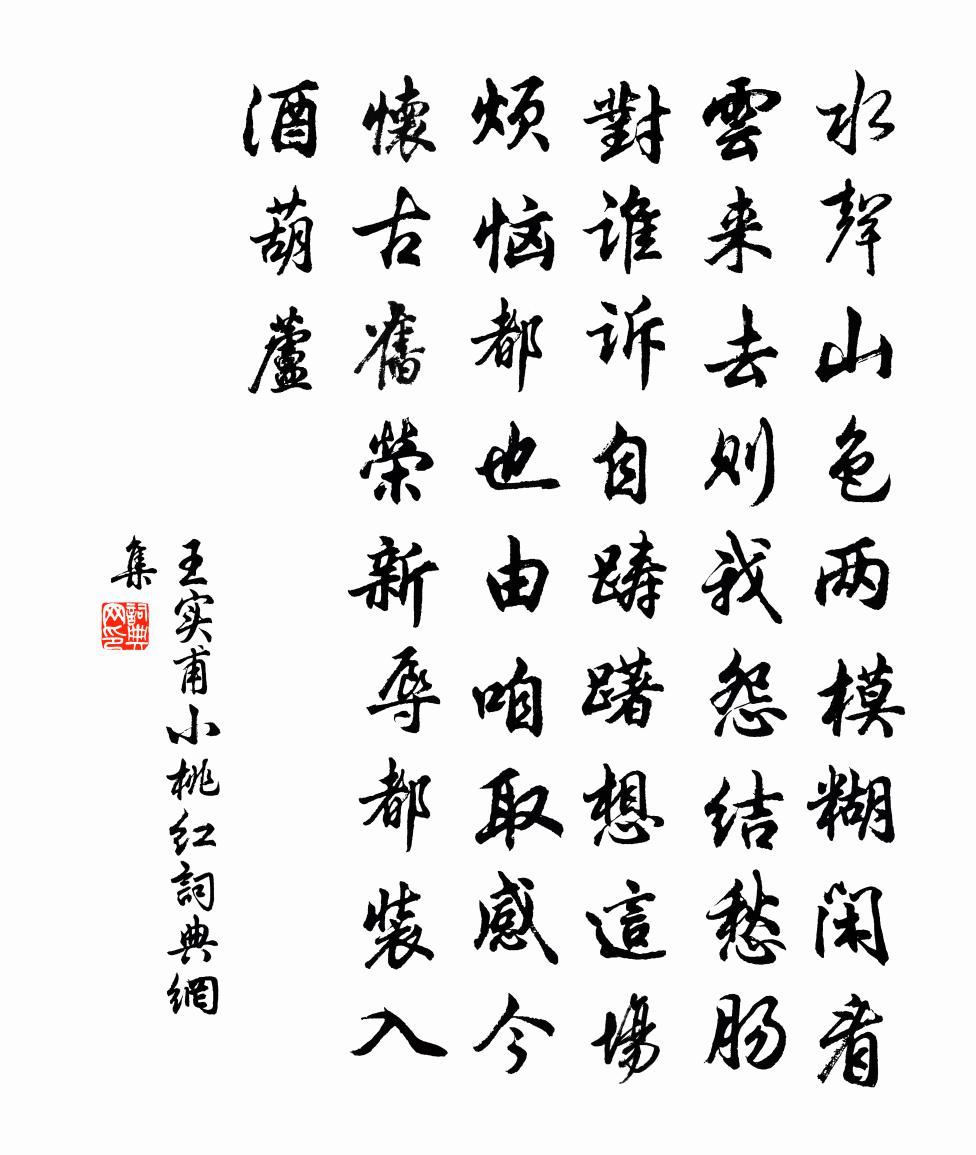 水聲山色两模糊闲看
雲来去则我怨结愁肠
對谁诉自踌躇想這場
烦恼都也由咱取感今
懷古舊榮新辱都装入
酒葫蘆
王实甫小桃红詞典網
集
詞典网印